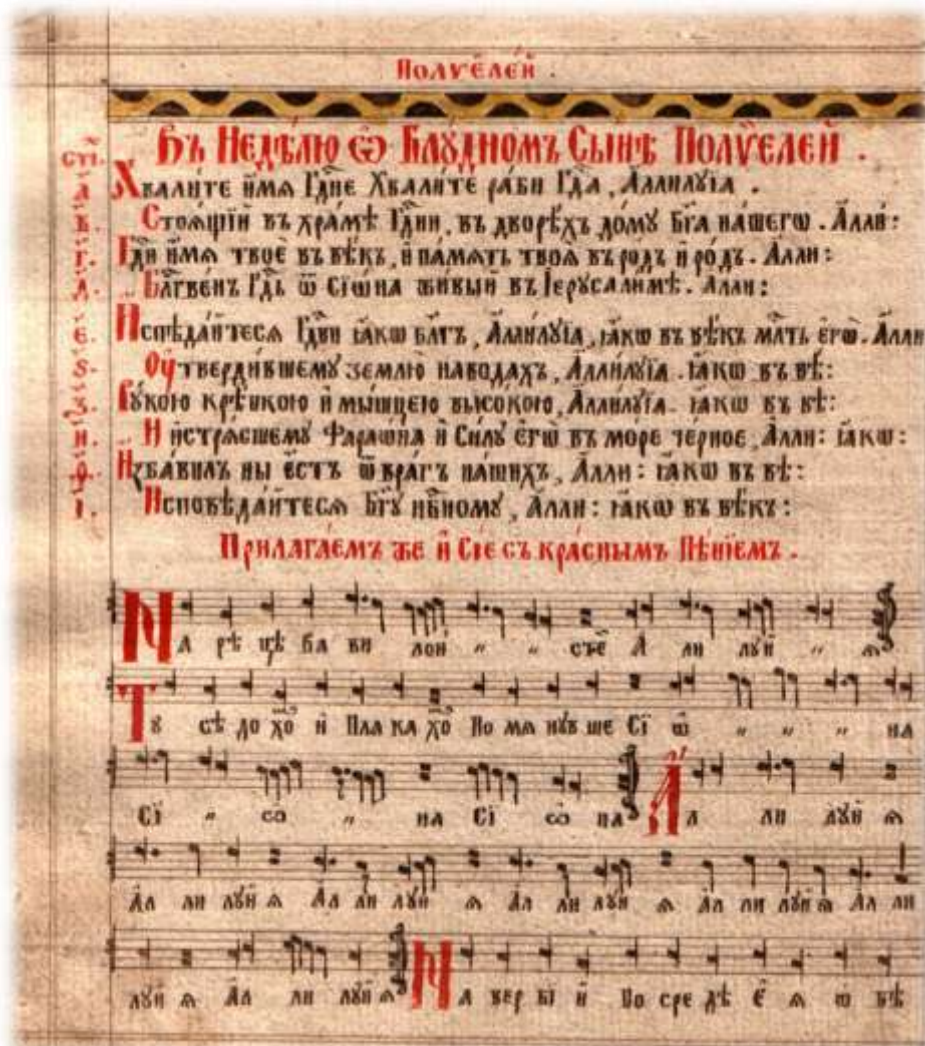 Полѵеле́й .
Въ Недѣ́лю Ѡ Блꙋ́дномъ Сы́нѣ Полѵеле́й .
сті.
а҃. Хвали́те и҆́мѧ Гд҇не Хвали́те ра́би Гд҇а , Аллилꙋ́їа .
в҃. Стоѧ́щїи въ хра́мѣ Гд҇ни , въ дворѣ́хъ до́мꙋ Бг҃а на́шегѡ . А҆лли :
г҃. Гд҇и и҆́мѧ твоѐ въ вѣ́къ , и҆ па́мѧть твоѧ̀ въ ро́дъ и҆ ро́дъ . А҆лли :
д҃. Блг҇ве́нъ Гд҇ь ѿ Сїѡ́на живы́й въ І҆ерꙋсали́мѣ . Алли :
є҃. Испѣда́йтесѧ Гд҇ви ꙗ҆́кѡ бл҃гъ , А҆ллилꙋ́їа , ꙗ҆́кѡ въ вѣ́къ млт҇ь є҆гѡ̀ . А҆лли
ѕ҃. Оу҆тверди́вшемꙋ зе́млю на вода́хъ , А҆ллилꙋ́їа . ꙗ҆́кѡ въ вѣ́ :
з҃. Рꙋко́ю крѣ́пкою и҆ мы́шцею высо́кою , А҆ллилꙋ́їа . ꙗ҆́кѡ въ вѣ́ :
и҃. И и҆стрѧ́сшемꙋ Фараѡ́на и҆ Си́лꙋ є҆гѡ̀ въ мо́ре че́рное , А҆лли : ꙗ҆́кѡ :
ѳ҃. Изба́вилъ ны є҆́стъ ѿ вра́гъ на́шихъ , А҆лли : ꙗ҆́кѡ въ вѣ́ :
і҃. Исповѣда́йтесѧ Бг҃ꙋ нб҇номꙋ , А҆лли : ꙗ҆́кѡ въ вѣ́къ :
Прилага́емъ же и҆ Сїѐ съ кра́снымъ Пѣ́нїемъ .
На рѣ цѣ ва ви лон „ „ сте́ А ли лꙋй „ ѧ
Тꙋ сѣ до хо́ и Пла ка хо́ По мѧ нꙋв ше Сї ѡ „ „ „ на
Сї „ ѡ „ на Сї ѡ на Ал ли лꙋй ѧ
Ал ли лꙋй ѧ Ал ли лꙋй ѧ Ал ли лꙋй ѧ Ал ли лꙋй ѧ Ал ли
лꙋй ѧ Ал ли лꙋй ѧ На вер бї и По сре дѣ Є ѧ ѡ бѣ